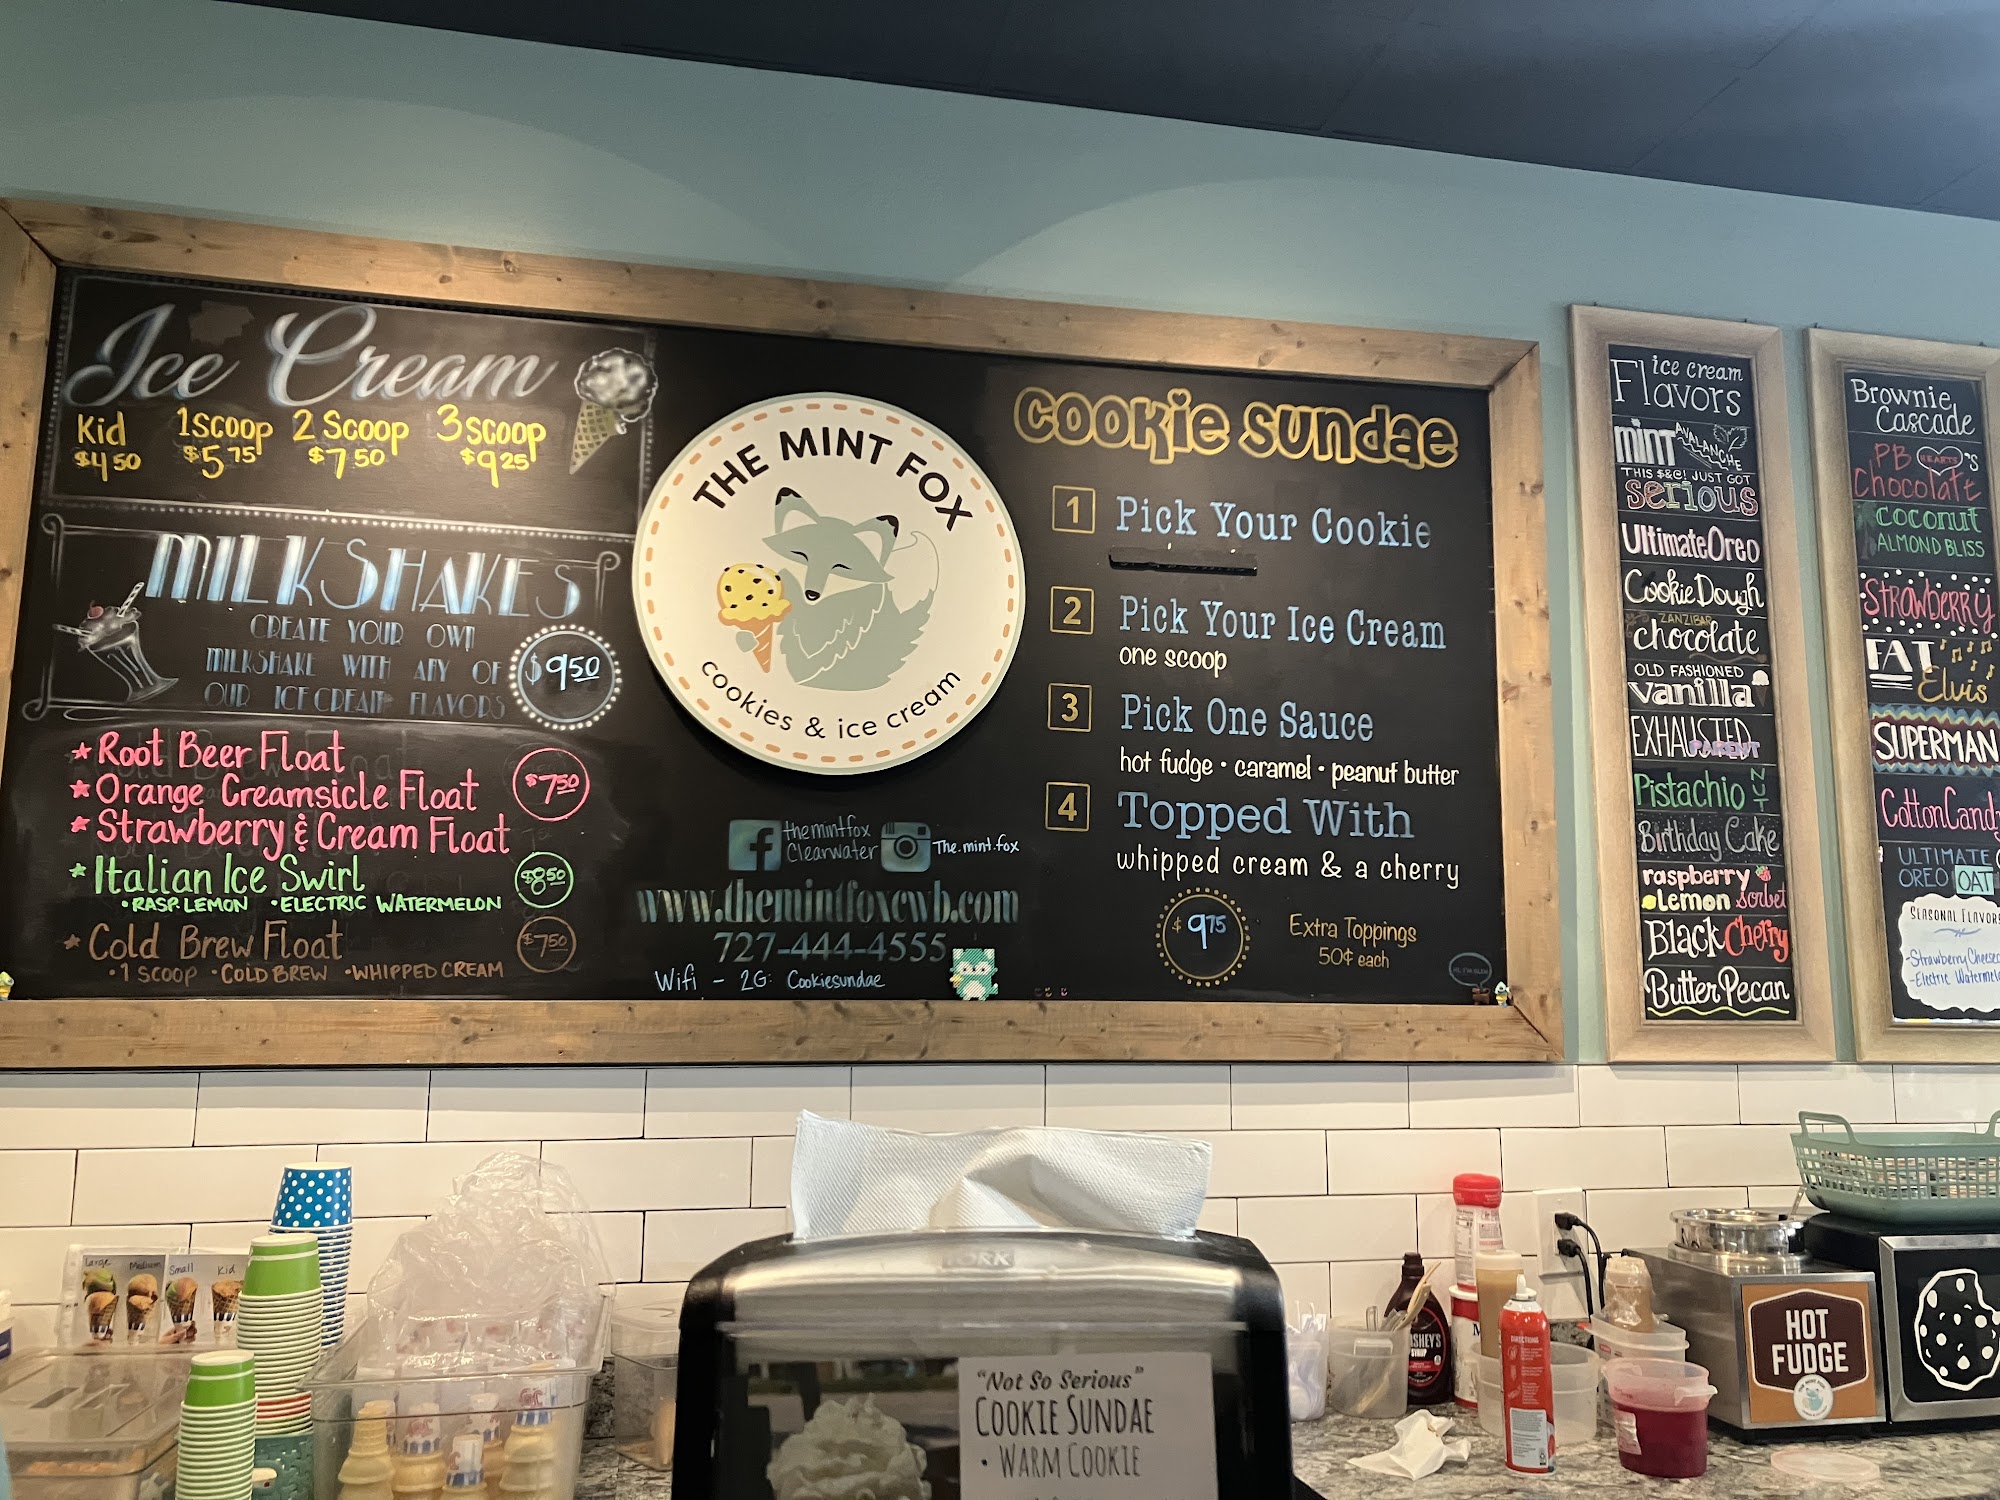 Ice Cream
Kid 1 Scoop 2 Scoop 3 Scoop
$4 50 $5 75 $7 50 $9 25
MILKSHAKES
CREATE YOUR OWN
MILKSHAKE WITH ANY OF
OUR ICE CREAM FLAVORS
$9 50
* Root Beer Float
* Orange Creamsicle Float
* Strawberry & Cream Float
$7 50
* Italian Ice Swirl
• RASP. LEMON • ELECTRIC WATERMELON
$8 50
* Cold Brew Float
• 1 SCOOP • COLD BREW • WHIPPED CREAM
$7 50
THE MINT FOX
cookies & ice cream
themintfox
Clearwater
The.mint.fox
www.themintfoxcwb.com
727-444-4555
Wifi - 2G: Cookiesundae
Cookie Sundae
1 Pick Your Cookie
2 Pick Your Ice Cream
one scoop
3 Pick One Sauce
hot fudge • caramel • peanut butter
4 Topped With
whipped cream & a cherry
$9 75
Extra Toppings
50¢ each
ice cream
Flavors
mint AVALANCHE
THIS $&@! JUST GOT
serious
Ultimate Oreo
Cookie Dough
ZANZIBAR
chocolate
OLD FASHIONED
vanilla
EXHAUSTED
PARENT
Pistachio NUT
Birthday Cake
raspberry
Lemon Sorbet
Black Cherry
Butter Pecan
Brownie
Cascade
PB HEARTS 'S
Chocolate
COCONUT
ALMOND BLISS
STRAWBERRY
FAT
Elvis
SUPERMAN
Cotton Candy
ULTIMATE
OREO OAT
SEASONAL FLAVORS
- Strawberry Cheesec
- Electric Watermelo
Large Medium Small Kid
TORK
"Not So Serious"
COOKIE SUNDAE
• WARM COOKIE
SHEY'S
SYRUP
DIRECTIONS
HOT
FUDGE